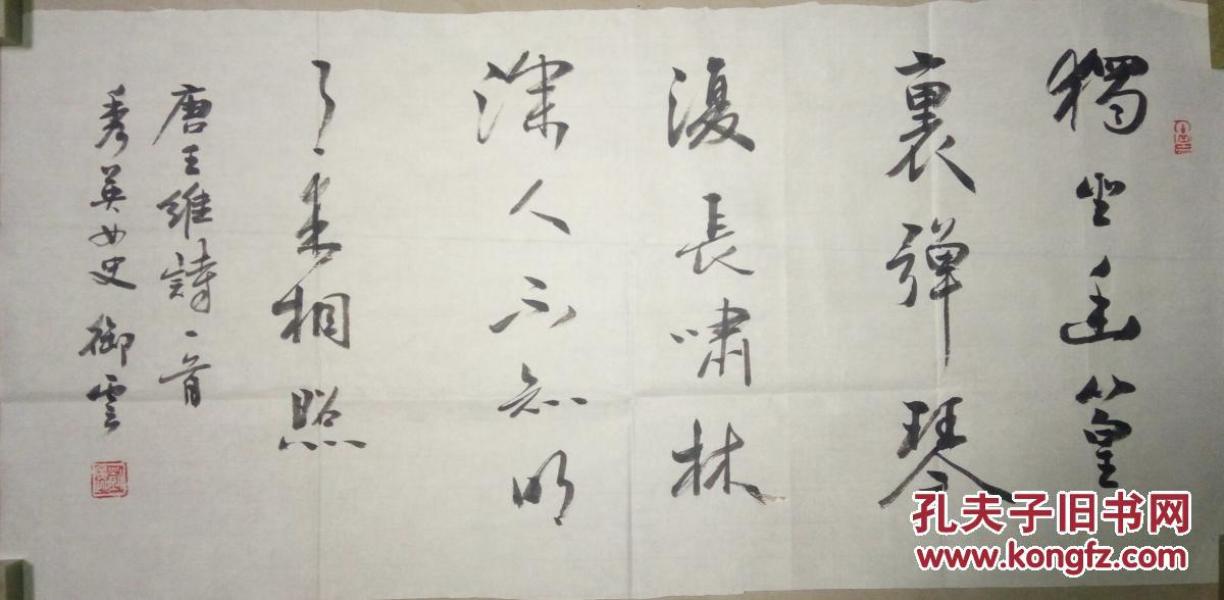 獨坐幽篁
裏弹琴
復長嘯林
深人不知明
月来相照
唐王維詩一首
秀英女史 御雲
孔夫子旧书网
www.kongfz.com